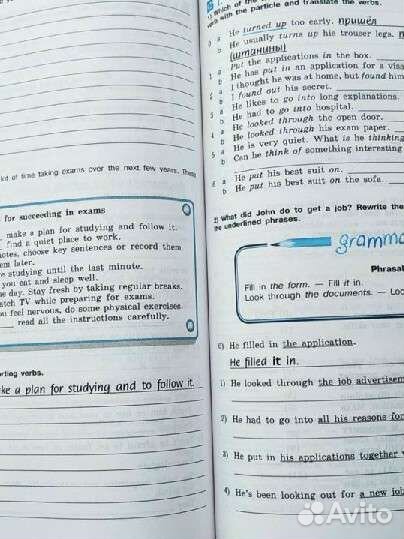 ld of time taking exams over the next few years. These
for succeeding in exams
make a plan for studying and follow it.
find a quiet place to work.
notes, choose key sentences or record them
em later.
e studying until the last minute.
you eat and sleep well.
he day. Stay fresh by taking regular breaks.
atch TV while preparing for exams.
ou feel nervous, do some physical exercises.
read all the instructions carefully.
orting verbs.
ke a plan for studying and to follow it.
1) Which of the
verb with the particle and translate the verbs.
0 a He turned up too early. пришёл
b He usually turns up his trouser legs.
(штанины)
a Put the applications in the box.
b He has put in an application for a visa
a I thought he was at home, but found him
b I found out his secret.
a He likes to go into long explanations.
b He had to go into hospital.
a He looked through the open door.
b He looked through his exam paper.
a He is very quiet. What is he thinking
b Can he think of something interesting
a He put his best suit on.
b He put his best suit on the sofa.
2) What did John do to get a job? Rewrite the
he underlined phrases.
gramma
Phrasal
Fill in the form. — Fill it in.
Look through the documents. — Loo
0) He filled in the application.
He filled it in.
1) He looked through the job advertisem
2) He had to go into all his reasons for
3) He put in his applications together w
4) He's been looking out for a new job
Avito